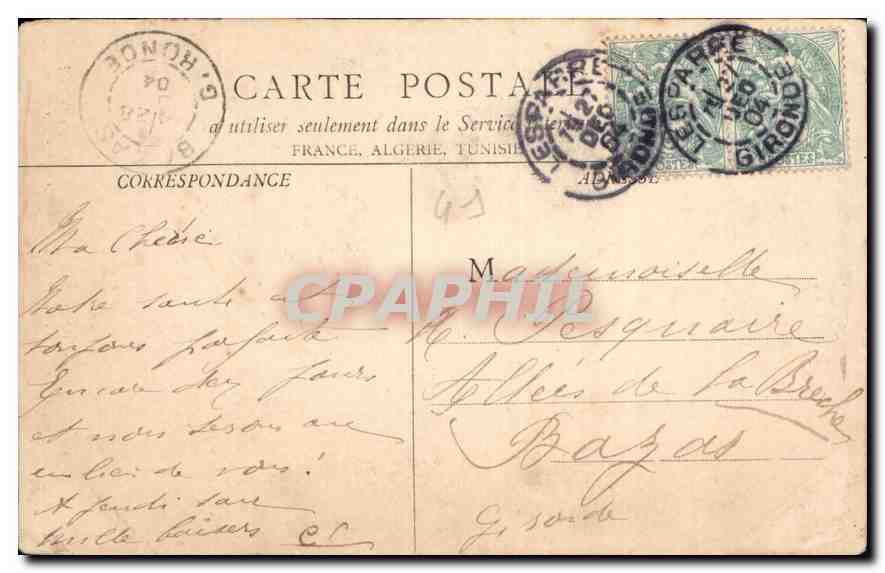 CARTE POSTALE
à utiliser seulement dans le Service
FRANCE, ALGERIE, TUNISIE
CORRESPONDANCE
ADRESSE
LESPARRE
27
DEC
04
GIRONDE
LESPARRE
27
DEC
04
GIRONDE
POSTES
BAZAS
28
04
GIRONDE
41
Ma Chérie
Notre santé est
toujours parfaite
Encore des jours
et nous serons au
milieu de vous!
A jeudi
mille baisers
Mademoiselle
H. Pesquaire
Allées de la Brèche
Bazas
Gironde
CPAPHIL